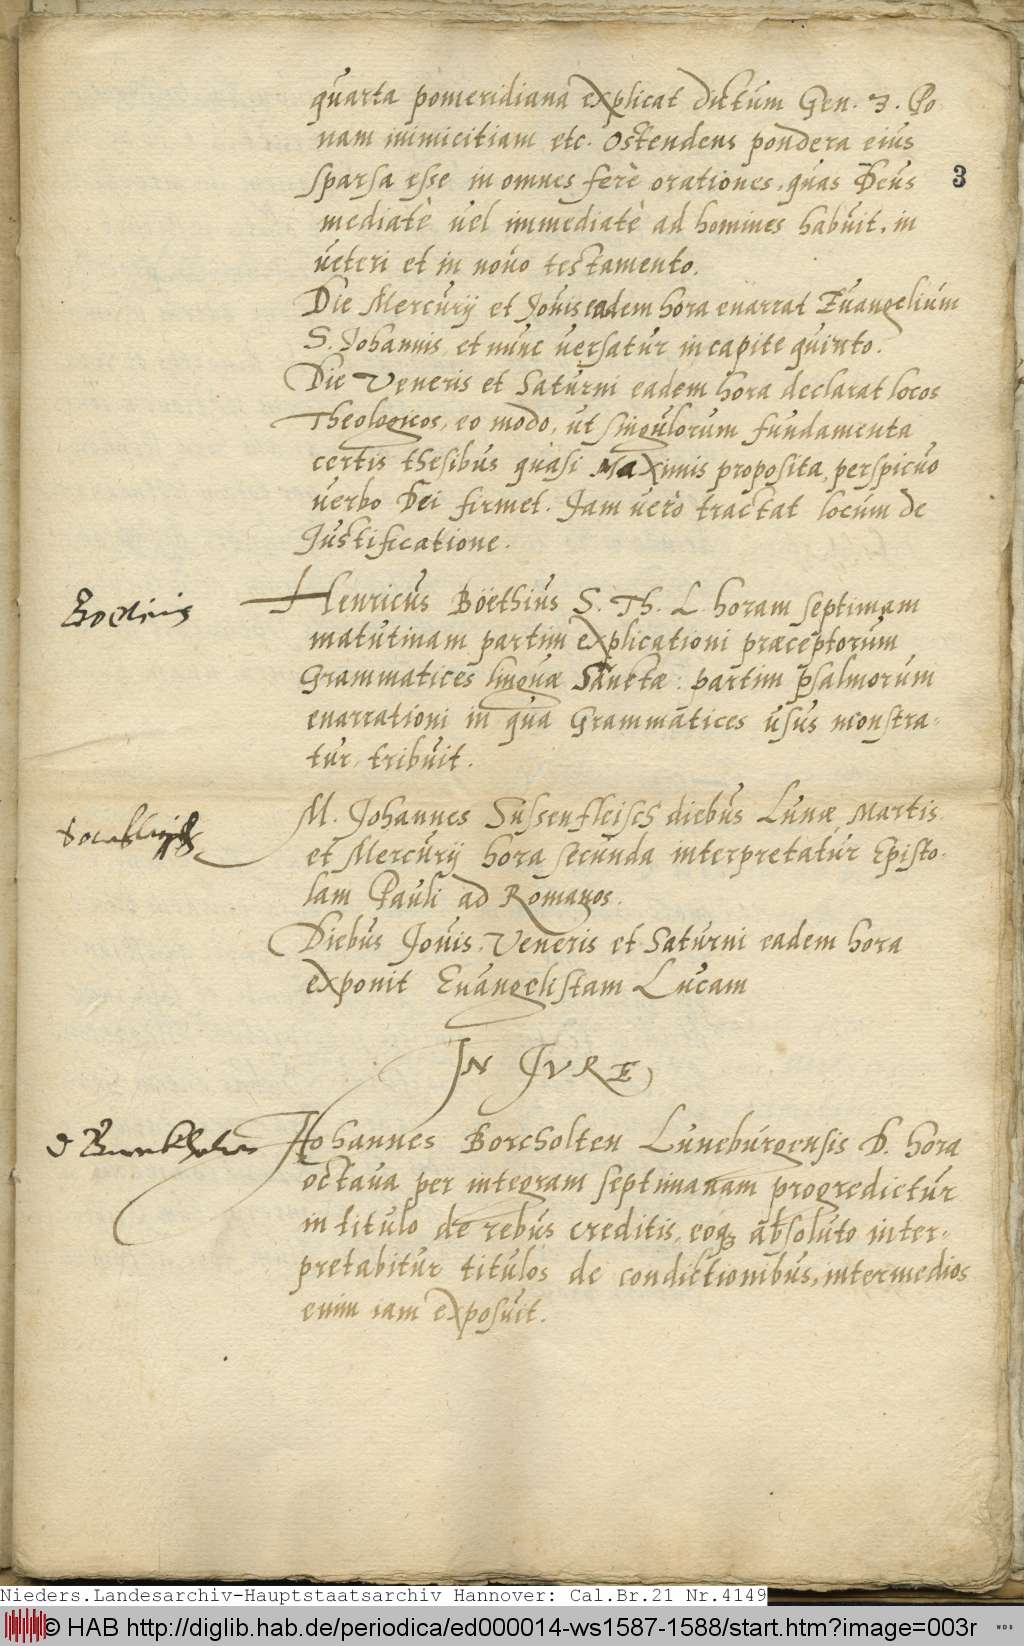 quarta pomeridiana explicat dictum Gen. 3. Po
nam inimicitiam etc. Ostendens pondera eius
3
sparsa esse in omnes ferè orationes, quas Deus
mediatè uel immediatè ad homines habuit, in
ueteri et in nouo testamento.
Die Mercurij et Jouis eadem hora enarrat Euangelium
S. Johannis et nunc uersatur in capite quinto.
Die Veneris et Saturni eadem hora declarat locos
Theologicos, eo modo, ut singulorum fundamenta
certis thesibus quasi Maximis proposita, perspicuo
uerbo Dei firmet. Jam uerò tractat locum de
Justificatione.
Boethius
Henricus Böethius S. Th. L. horam septimam
matutinam partim explicationi præceptorum
Grammatices linguæ Sanctæ: partim psalmorum
enarrationi in qua Grammatices usus monstra-
tur, tribuit.
M. Johannes Sussenfleisch diebus Lunæ Martis
et Mercurij hora secunda interpretatur Episto-
lam Pauli ad Romanos.
Diebus Jouis, Veneris et Saturni eadem hora
exponit Euangelistam Lucam
IN JVRE
D
Johannes Borcholten Luneburgensis D. hora
octaua per integram septimanam progredietur
in titulo de rebus creditis, eoq; absoluto inter-
pretabitur titulos de condictionibus, intermedios
enim iam exposuit.
Nieders.Landesarchiv-Hauptstaatsarchiv Hannover: Cal.Br.21 Nr.4149
© HAB http://diglib.hab.de/periodica/ed000014-ws1587-1588/start.htm?image=003r
WDB